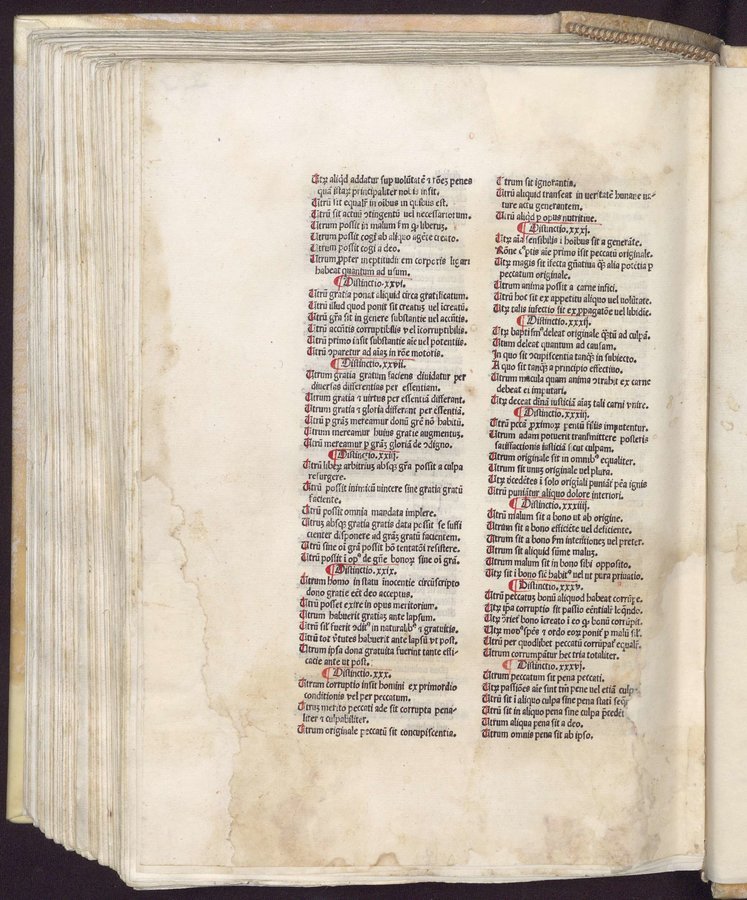 Utrum aliqd addatur sup volūtatē ⁊ rōeȝ penes
quā istaȝ principaliter nobis insit.
Utrū sit equalr̄ in oībus in quibus est.
Utrū sit actuū ↄtingentū vel necessariorum.
Utrum possit in malum fm ꝙ liberuȝ.
Utrum possit cogi ab aliquo agēte creato.
Utrum possit cogi a deo.
Utrum ꝓpter ineptitudinē corporis ligari
habeat quantum ad usum.
¶ Distinctio.xxvi.
Utrū gratia ponat aliquid circa gratificatum.
Utrū illud quod ponit sit creatuȝ vel īcreatū.
Utrū grā sit in genere substantie vel accn̄tis.
Utrū accn̄tis corruptibilis vel īcorrutpibilis.
Utrū primo īsit substantie aīe vel potentiis.
Utrū ↄparetur ad aīaȝ in rōe motoris.
¶ Distinctio.xxvii.
Utrum gratia gratum faciens diuidatur per
diuersas differentias per essentiam.
Utrum gratia ⁊ virtus per essentiā differant.
Utrum gratia ⁊ gloria differant per essentiā.
Utrū p grāȝ mereamur donū grē nō habitū.
Utrum mereamur huius gratie augmentuȝ.
Utrū mereamur p grāȝ gloriā de ↄdigno.
¶ Distinctio.xxiij.
Utrū liberȝ arbitriuȝ absqȝ grā possit a culpa
resurgere.
Utrū possit inimicū vincere sine gratia gratū
faciente.
Utrū possit omnia mandata implere.
Utruȝ absqȝ gratia gratis data possit se suffi
cienter disponere ad grāȝ gratū facientem.
Utrū sine oī grā possit hō tentatōi resistere.
Utrū possit ī opꝰ de gn̄e bonorȝ sine oī grā.
¶ Distinctio.xxix.
Utrum homo in statu inocentie circūscripto
dono gratie eēt deo acceptus.
Utrū posset exire in opus meritorium.
Utrum habuerit gratiaȝ ante lapsum.
Utrū sil̄ fuerit ↄditꝰ in naturalibꝰ ⁊ gratuitis.
Utrū tot v̄tutes habuerit ante lapsū vt post.
Utrum ipsa dona gratuita fuerint tante effi-
cacie ante ut post.
¶ Distinctio.xxx.
Utrum corruptio insit homini ex primordio
conditionis vel per peccatum.
Utruȝ merito peccati ade sit corrupta pena-
liter ⁊ culpabiliter.
Utrum originale peccatū sit concupiscentia.
Utrum sit ignorantia.
Utrum aliquid transeat in veritatē humane na-
ture actu generantem.
Utrū aliqd p opus nutritiue.
¶ Distinctio.xxxi.
Utȝ aīa sensibilis ī hoībus sit a generāte.
Rōne cꝰptis aīe primo īsit peccatū originale.
Utȝ magis sit īfecta gn̄atiua qȝ alia potētia p
peccatum originale.
Utrum anima possit a carne infici.
Utrū hoc sit ex appetitu aliquo vel volūtate.
Utȝ talis infectio sit ex ꝓpagatōe vel libidīe.
¶ Distinctio.xxxij.
Utȝ baptismꝰ deleat originale qȝtū ad culpā.
Utrum deleat quantum ad causam.
In quo sit ↄcupiscentia tanqȝ in subiecto.
A quo sit tanqȝ a principio effectiuo.
Utrum macula quam anima ↄtrahit ex carne
debeat ei imputari.
Utȝ deceat diuinā iusticiā aīaȝ tali carni vnire.
¶ Distinctio.xxxiij.
Utrū pctā ꝓximorȝ pentū filiis imputentur.
Utrum adam potuerit transmittere posteris
satisfactionis iusticiā sicut culpam.
Utrum originale sit in omnibꝰ equaliter.
Utrum sit unuȝ originale vel plura.
Utȝ decedētes ī solo origīali puniāt̄ pēa ignis
Utrū puniātur aliquo dolore interiori.
¶ Distinctio.xxxiiij.
Utrū malum sit a bono ut ab origine.
Utrum sit a bono efficiēte vel deficiente.
Utrum sit a bono fm intentioneȝ vel preter.
Utrum sit aliquid sūme maluȝ.
Utrum malum sit in bono sibi opposito.
Utȝ sit ī bono sic̄ habitꝰ vel ut pura priuatio.
¶ Distinctio.xxxv.
Utrū peccatuȝ bonū aliquod habeat corrūpe.
Utȝ ipa corruptio sit passio eēntiali loq̄ndo.
Utȝ ↄrief bono īcreato ī eo ꝙ bonū corrūpit.
Utȝ modꝰ spēs ⁊ ordo eorȝ ponit p malū fil̄.
Utrū per quodlibet peccatū corrūpat̄ equalr̄.
Utrum corrumpātur hec tria totaliter.
¶ Distinctio.xxxvi.
Utrum peccatum sit pena peccati.
Utȝ passiōes aīe sint tm̄ pene vel etiā culpe
Utrū sit ī aliquo culpa sine pena stati
Utrū sit in aliquo pena sine culpa p̄cedēt
Utrum aliqua pena sit a deo.
Utrum omnis pena sit ab ipso.